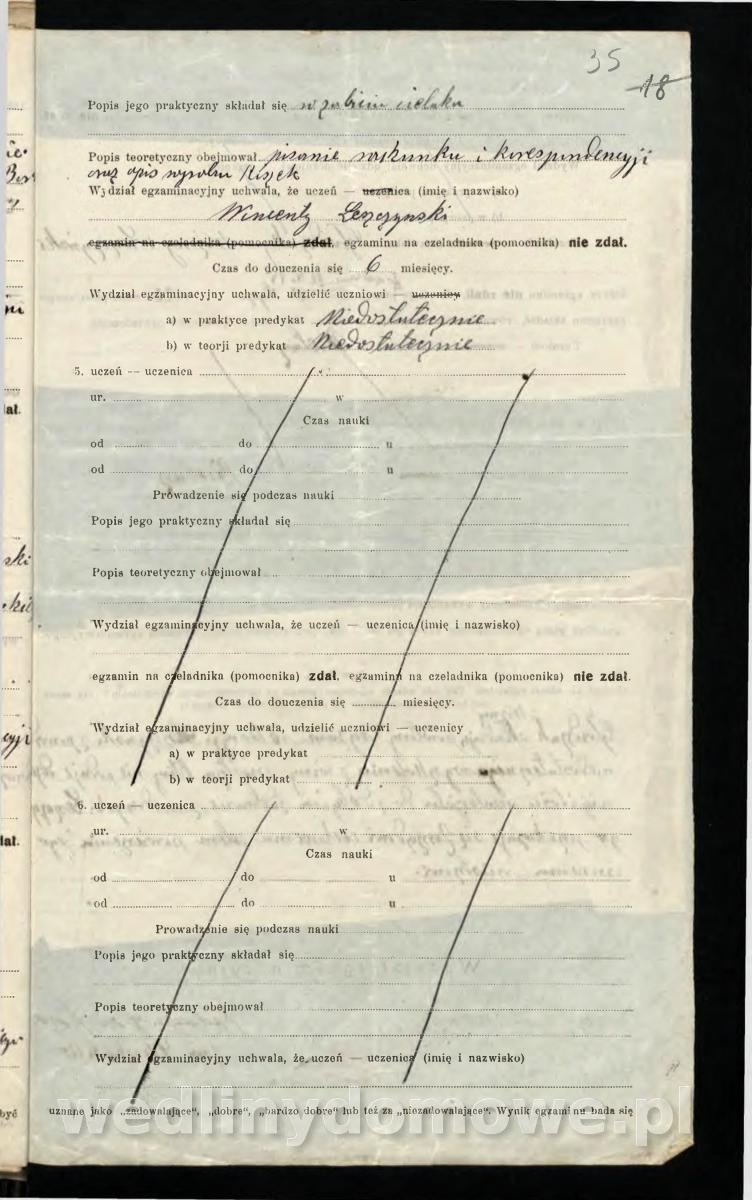 35
18
Popis jego praktyczny składał się w zabiciu cielaka
Popis teoretyczny obejmował pisanie rachunku i korespondencyji
oraz opis wyrobu Kiszek
Wydział egzaminacyjny uchwala, że uczeń — uczenica (imię i nazwisko)
Wincenty Leszczynski
egzamin na czeladnika (pomocnika) zdał, egzaminu na czeladnika (pomocnika) nie zdał.
Czas do douczenia się 6 miesięcy.
Wydział egzaminacyjny uchwala, udzielić uczniowi — uczenicy
a) w praktyce predykat Niedostatecznie
b) w teorji predykat Niedostatecznie
5. uczeń — uczenica
ur. w
Czas nauki
od do u
od do u
Prowadzenie się podczas nauki
Popis jego praktyczny składał się
Popis teoretyczny obejmował
Wydział egzaminacyjny uchwala, że uczeń — uczenica (imię i nazwisko)
egzamin na czeladnika (pomocnika) zdał, egzaminu na czeladnika (pomocnika) nie zdał.
Czas do douczenia się miesięcy.
Wydział egzaminacyjny uchwala, udzielić uczniowi — uczenicy
a) w praktyce predykat
b) w teorji predykat
6. uczeń — uczenica
ur. w
Czas nauki
od do u
od do u
Prowadzenie się podczas nauki
Popis jego praktyczny składał się
Popis teoretyczny obejmował
Wydział egzaminacyjny uchwala, że uczeń — uczenica (imię i nazwisko)
uznane jako „zadowalające“, „dobre“, „bardzo dobre“ lub też za „niezadowalające“. Wynik egzaminu bada się
wedlinydomowe.pl